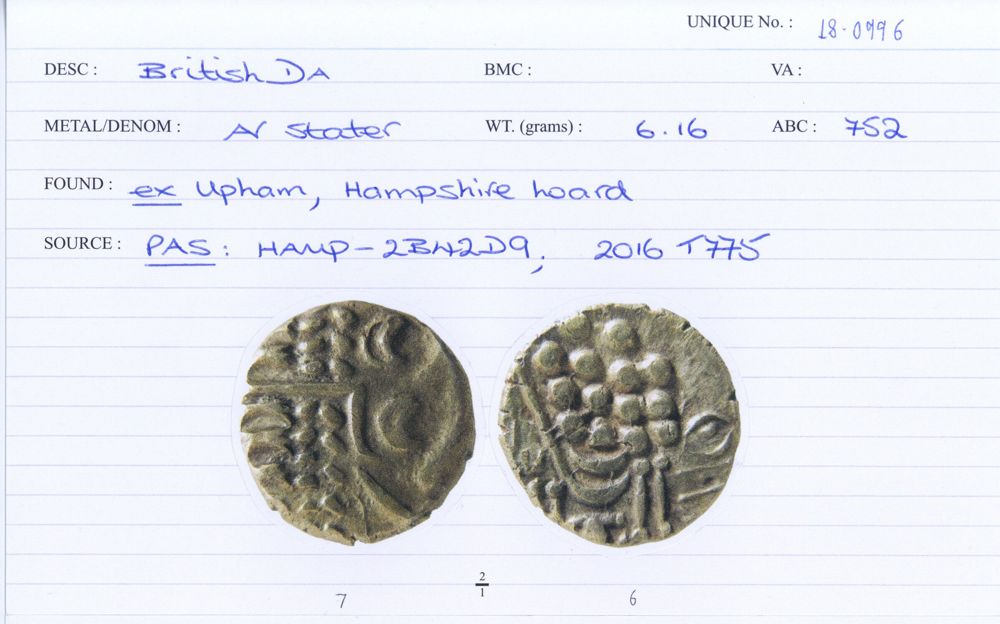 UNIQUE No. : 18·0996
DESC : British DA BMC : VA :
METAL/DENOM : AV Stater WT. (grams) : 6.16 ABC : 752
FOUND : ex Upham, Hampshire hoard
SOURCE : PAS: HAMP-2B42D9; 2016 T775
2
1
7 6